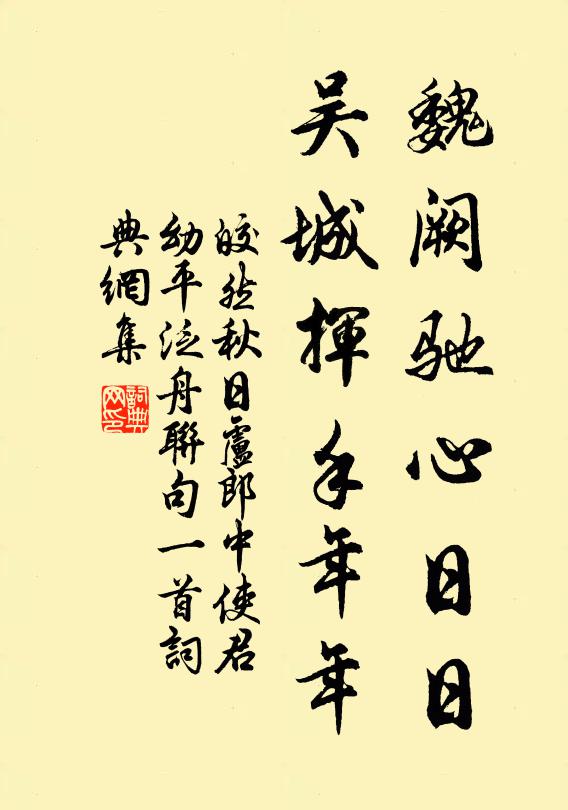 魏阙驰心日日
吴城揮手年年
皎然秋日盧郎中使君
幼平泛舟聯句一首詞
典網集
詞典網印